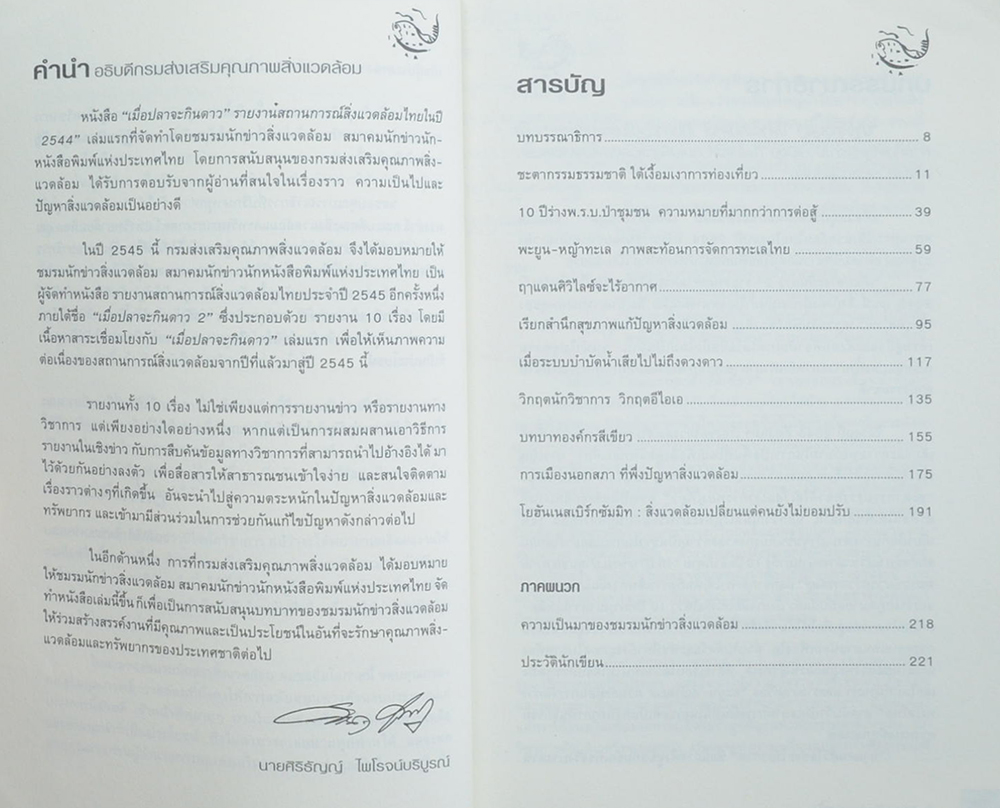 คำนำ อธิบดีกรมส่งเสริมคุณภาพสิ่งแวดล้อม
หนังสือ “เมื่อปลาจะกินดาว” รายงานสถานการณ์สิ่งแวดล้อมไทยในปี
2544” เล่มแรกที่จัดทำโดยชมรมนักข่าวสิ่งแวดล้อม สมาคมนักข่าวนัก-
หนังสือพิมพ์แห่งประเทศไทย โดยการสนับสนุนของกรมส่งเสริมคุณภาพสิ่ง-
แวดล้อม ได้รับการตอบรับจากผู้อ่านที่สนใจในเรื่องราว ความเป็นไปและ
ปัญหาสิ่งแวดล้อมเป็นอย่างดี
ในปี 2545 นี้ กรมส่งเสริมคุณภาพสิ่งแวดล้อม จึงได้มอบหมายให้
ชมรมนักข่าวสิ่งแวดล้อม สมาคมนักข่าวนักหนังสือพิมพ์แห่งประเทศไทย เป็น
ผู้จัดทำหนังสือ รายงานสถานการณ์สิ่งแวดล้อมไทยประจำปี 2545 อีกครั้งหนึ่ง
ภายใต้ชื่อ “เมื่อปลาจะกินดาว 2” ซึ่งประกอบด้วย รายงาน 10 เรื่อง โดยมี
เนื้อหาสาระเชื่อมโยงกับ “เมื่อปลาจะกินดาว” เล่มแรก เพื่อให้เห็นภาพความ
ต่อเนื่องของสถานการณ์สิ่งแวดล้อมจากปีที่แล้วมาสู่ปี 2545 นี้
รายงานทั้ง 10 เรื่อง ไม่ใช่เพียงแต่การรายงานข่าว หรือรายงานทาง
วิชาการ แต่เพียงอย่างใดอย่างหนึ่ง หากแต่เป็นการผสมผสานเอาวิธีการ
รายงานในเชิงข่าว กับการสืบค้นข้อมูลทางวิชาการที่สามารถนำไปอ้างอิงได้ มา
ไว้ด้วยกันอย่างลงตัว เพื่อสื่อสารให้สาธารณชนเข้าใจง่าย และสนใจติดตาม
เรื่องราวต่างๆที่เกิดขึ้น อันจะนำไปสู่ความตระหนักในปัญหาสิ่งแวดล้อมและ
ทรัพยากร และเข้ามามีส่วนร่วมในการช่วยกันแก้ไขปัญหาดังกล่าวต่อไป
ในอีกด้านหนึ่ง การที่กรมส่งเสริมคุณภาพสิ่งแวดล้อม ได้มอบหมาย
ให้ชมรมนักข่าวสิ่งแวดล้อม สมาคมนักข่าวนักหนังสือพิมพ์แห่งประเทศไทย จัด
ทำหนังสือเล่มนี้ขึ้น ก็เพื่อเป็นการสนับสนุนบทบาทของชมรมนักข่าวสิ่งแวดล้อม
ให้ร่วมสร้างสรรค์งานที่มีคุณภาพและเป็นประโยชน์ในอันที่จะรักษาคุณภาพสิ่ง-
แวดล้อมและทรัพยากรของประเทศชาติต่อไป
นายศิริธัญญ์ ไพโรจน์บริบูรณ์
สารบัญ
บทบรรณาธิการ 8
ชะตากรรมธรรมชาติ ใต้เงื้อมเงาการท่องเที่ยว 11
10 ปีร่างพ.ร.บ.ป่าชุมชน ความหมายที่มากกว่าการต่อสู้ 39
พะยูน-หญ้าทะเล ภาพสะท้อนการจัดการทะเลไทย 59
ฤๅแดนศิวิไลซ์จะไร้อากาศ 77
เรียกสำนึกสุขภาพแก้ปัญหาสิ่งแวดล้อม 95
เมื่อระบบบำบัดน้ำเสียไปไม่ถึงดวงดาว 117
วิกฤตนักวิชาการ วิกฤตอีไอเอ 135
บทบาทองค์กรสีเขียว 155
การเมืองนอกสภา ที่พึ่งปัญหาสิ่งแวดล้อม 175
โยฮันเนสเบิร์กซัมมิท : สิ่งแวดล้อมเปลี่ยนแต่คนยังไม่ยอมปรับ 191
ภาคผนวก
ความเป็นมาของชมรมนักข่าวสิ่งแวดล้อม 218
ประวัตินักเขียน 221